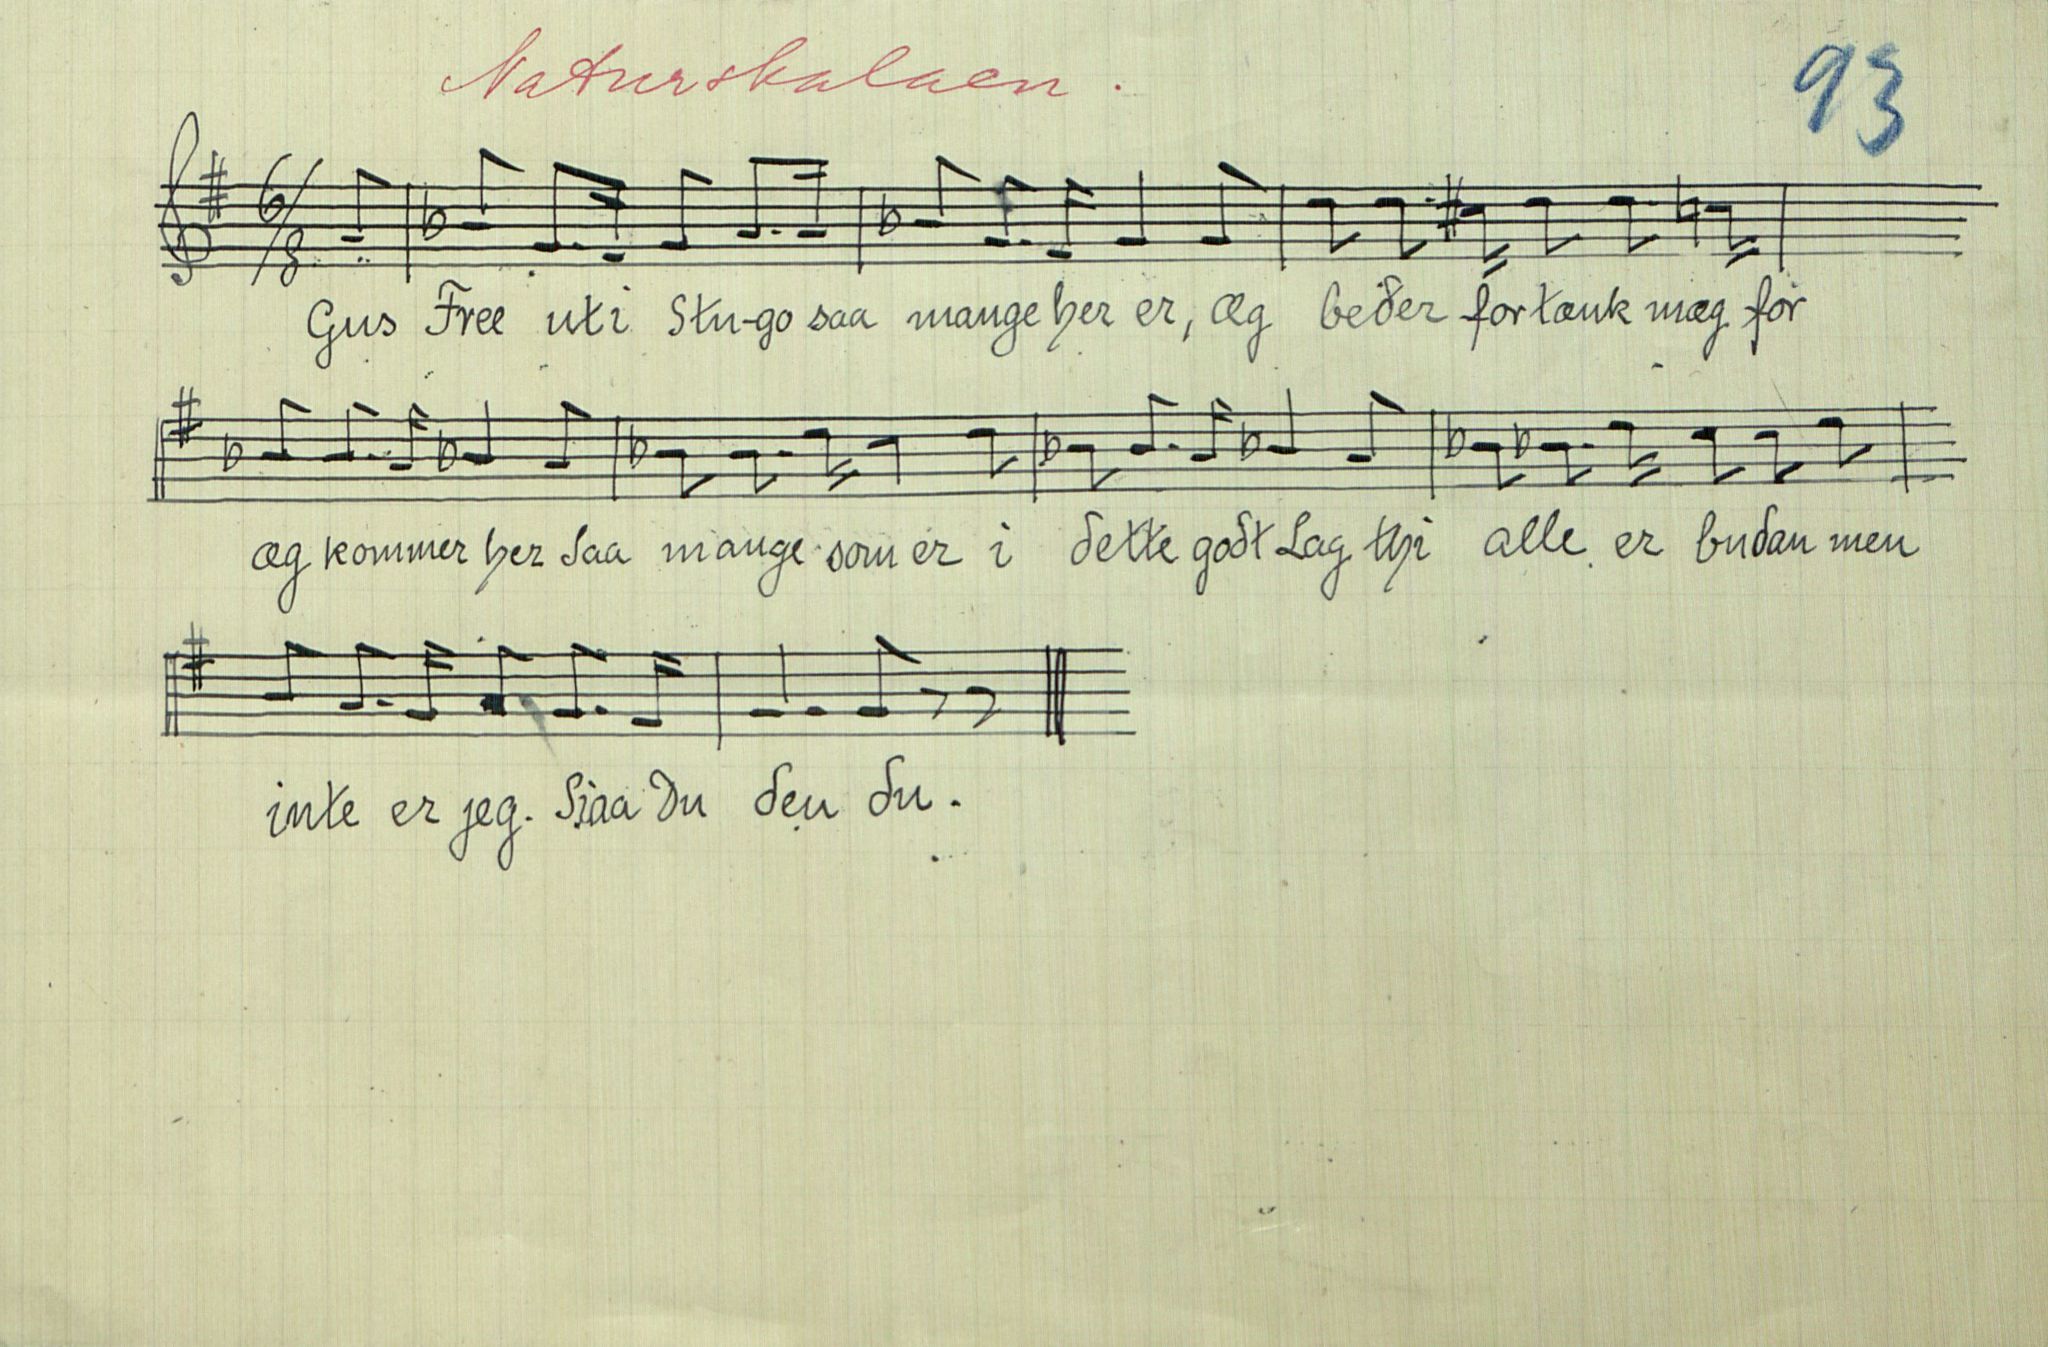 Naturskalaen.
93
6/8
Gus Free uti Stu-go saa mange her er, æg beder fortænk mæg for
æg kommer her saa mange som er i dette godt Lag thi alle er budan men
inte er jeg. Siaa Du den du.